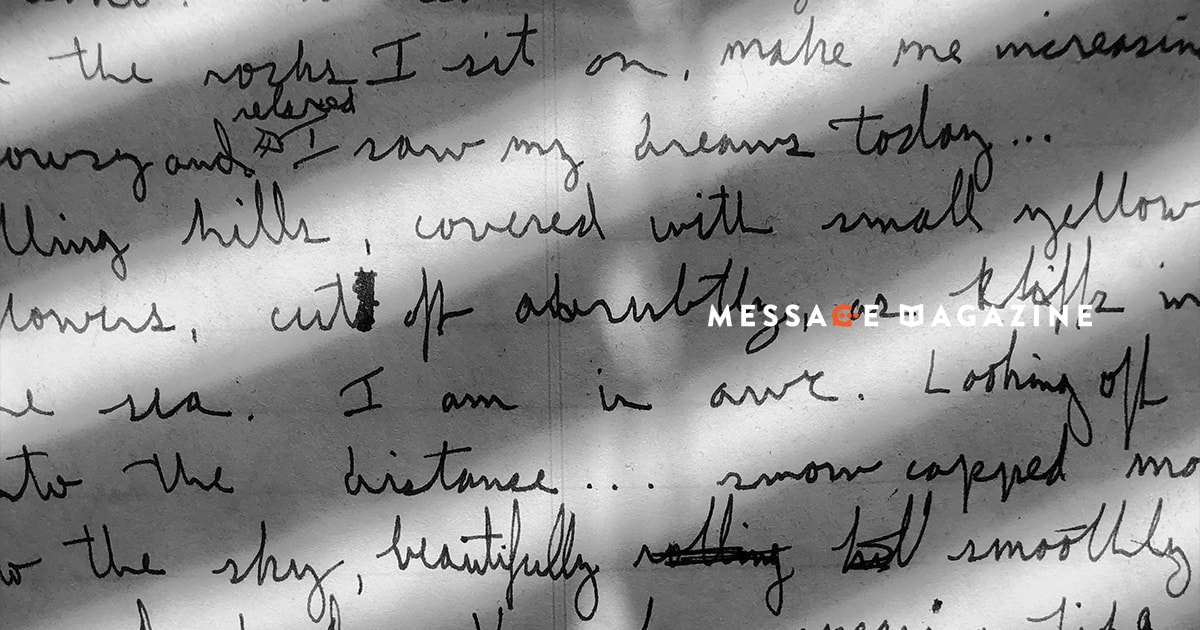 the rocks I sit on, make me increasin
relaxed
owsy and I saw my dreams today...
lling hills, covered with small yellow
lowers, cut off abruptly, as kliffs in
MESSAGE MAGAZINE
e sea. I am in awe. Looking off
nto the distance... snow capped mo
the sky, beautifully rolling smoothly